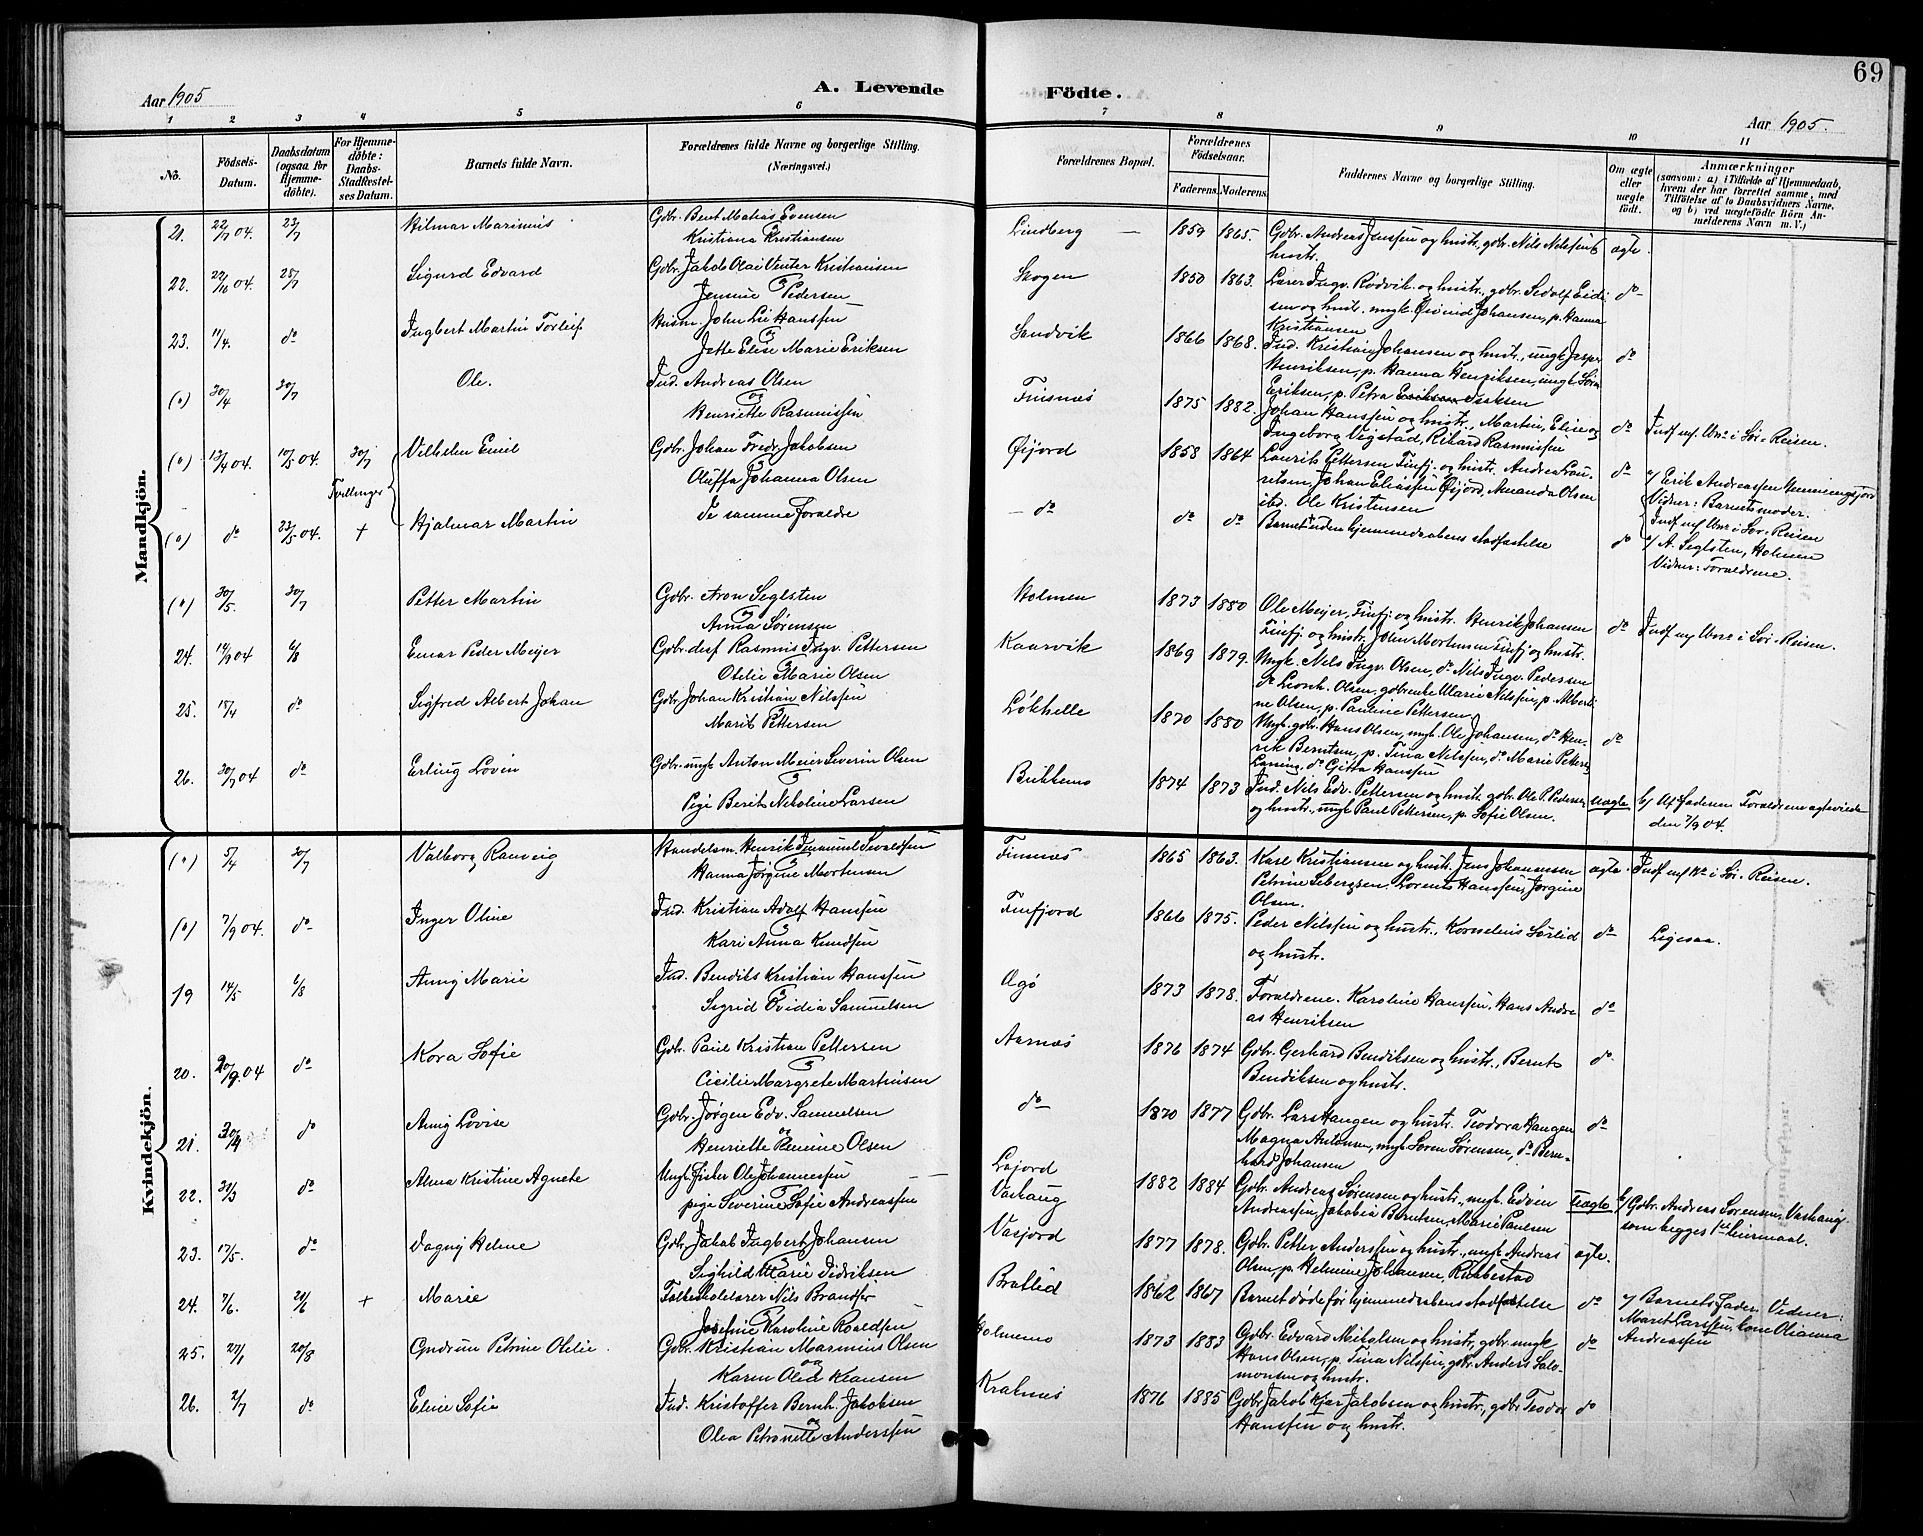 69
Aar 1905
A. Levende
Födte.
Aar 1905.
1 2 3 4 5 6 7 8 9 10 11
No.
Födsels-Datum.
Daabsdatum (ogsaa for Hjemmedöbte).
For Hjemmedöbte: Daabs-Stadfæstelses Datum.
Barnets fulde Navn.
Forældrenes fulde Navne og borgerlige Stilling. (Næringsvei.)
Forældrenes Bopæl.
Forældrenes Födselsaar.
Faderens.
Moderens.
Faddernes Navne og borgerlige Stilling.
Om ægte eller uægte födt.
Anmærkninger
(saasom: a) i Tilfælde af Hjemmedaab, hvem der har forrettet samme, med Tilföielse af to Daabsvidners Navne, og b) ved uægtefödte Börn Anmelderens Navn m. V.)
Mandkjön.
21. 22/7 04. 23/7 Hilmar Marinius Gdbr. Bent Matias Evensen
Kristiana Kristiansen Lindberg 1859 1865. Gdbr. Andreas Jenssen og hustr. gdbr. Nils Nilssen &
hustr. ægte.
22. 22/10 04. 25/7 Sigurd Edvard Gdbr. Jakob Olai Venter Kristiansen
Jensine Pedersen Skogen 1850 1863. Lærer Ingv. Rødvik og hustr., gdbr. Sedolf Eidi
sen og hustr. ungk. Øivind Johansen, p. Hanna
Kristiansen do
23. 11/4. do Ingbert Martin Torleif Husm. John Lie Hanssen
og
Jette Elise Marie Eriksen Sandvik 1866 1868. Ind. Kristian Johansen og hustr., ungk. Jesper
Henriksen, p. Hanna Henriksen, ungk. Sørn
Eriksen, p. Petra Isaksen do
(0) 30/4 30/7 Ole. Ind. Andreas Olsen
og
Henriette Rasmussen Finsnæs 1875 1882. Johan Hanssen og hustr., Martin, Elise og
Ingeborg Vigstad, Rikard Rasmussen do Indf. uf. Unr i Sør-Reisen.
(0) 13/4 04. 10/5 04. 30/7 Vilhelm Emil Gdbr. Johan Fredr. Jakobsen
Oluffa Johanna Olsen Øijord 1858 1864 Laurits Pettersen Finfj. og hustr. Andrea Lau-
ritsen, Johan Eliassen Øijord, Amanda Olsen
ibd. Ole Kristensen do a/ Erik Andreassen Henningsfjord
Vidner: Barnets moder.
Tvillinger
(0) do 23/5 04. + Hjalmar Martin de samme Forældre do do do Barnet + uden hjemmedaabens stadfæstelse do Indf. uf. Unr i Sør-Reisen
a/ A. Seglsten, Holmen
Vidner: Forældrene.
(0) 30/5. 30/7 Petter Martin Gdbr. Aron Seglsten
og
Anna Sørensen Holmen 1873 1880 Ole Meijer, Finfj. og hustr. Henrik Johansen
Finfj. og hustr. John Mortensen Finfj og hustr. do Indf uf Unr i Sør-Reisen.
24. 14/9 04 6/8 Einar Peder Meijer Gdbr. desf Rasmus Ingv. Pettersen
Otilie Marie Olsen Kaarvik 1869 1879. Ungk. Nils Ingv. Olsen, do Nils Ingv. Pedersen
do Leonh. Olsen, gdbrenke Marie Nilssen, p. Alberti
ne Olsen, p. Pauline Pettersen
25. 15/4 do Sigfred Albert Johan Gdbr. Johan Kristian Nilssen
Marit Pettersen Løkhelle 1870 1880 Ungk. gdbr. Hans Olsen, ungk. Ole Johansen, do Hen-
rik Berntsen, p. Tina Nilssen, do Marie Petters
Lanning, do Gitta Hanssen do
26. 30/7 04 do Erling Lovin Gdbr. ungk. Anton Meier Severin Olsen
Pige Berit Nikoline Larsen Bukkemo 1874 1873 Ind. Nils Edv. Pettersen og hustr. gdbr. Ole P. Pedersen
og hustr., ungk. Paul Pettersen, p. Sofie Olsen. uægte b/ Af Faderen. Forældrene ægteviede
den 7/9 04.
Kvindekjön.
(0) 5/4 30/7 Valborg Ranveig Handelsm. Henrik Imanuel Sevaldsen
Hanna Jørgine Mortensen Finsnæs 1865 1863. Karl Kristiansen og hustr. Jens Johannesen
Petrine Sebergsen, Lorents Hanssen, Jørgine
Olsen. ægte. Indf uf Nr i Sør-Reisen.
(0) 7/9 04. do Inger Oline Ind. Kristian Adolf Hanssen
Kari Anna Knudsen Finfjord 1866 1875. Peder Nilssen og hustr., Kornelius Sørlid
og hustr. do Ligesaa.
19 14/5 6/8 Anny Marie Ind. Bendiks Kristian Hanssen
Sigrid Ovidia Samuelsen Ogö 1873 1878. Forældrene. Karoline Hanssen. Hans Andre
as Henriksen do
20. 20/9. 04 do Kora Sofie Gdbr. Paul Kristian Pettersen
Cicilie Margrete Martinsen Aarnæs 1876 1874 Gdbr. Gerhard Bendiksen og hustr., Bernt
Bendiksen og hustr. do
21. 30/4 do Anny Lovise Gdbr. Jørgen Edv. Samuelsen
og
Henriette Pernine Olsen do 1870 1877 Gdbr. Lars Haugen og hustr. Teodora Haugen
Magna Antonsen, ungk Søren Sørensen, do Bern-
hard Johansen do
22. 31/3 do Alma Kristine Agnete Ungk. Fisker Ole Johannessen
pige Severine Sofie Andreassen Lajord
Vashaug 1882 1884 Gdbr. Andreas Sørensen og hustr., ungk. Edvin
Andreassen, Jakobia Berntsen, Marie Paulsen uægte b/ Gdbr. Andreas Sørensen, Vashaug.
som begges 1ste leiermaal.
23. 17/5. do Dagny Helene Gdbr. Jakob Ingbert Johansen
Sighild Marie Didriksen Vasjord 1877 1878. Gdbr. Petter Anderssen og hustr., ungk Andreas
Olsen, p. Helmine Johansen, Rubbestad ægte.
24. 7/6. 20/6 + Marie Folkeskolelærer Nils Brandser
Josefine Karoline Roaldsen Bratlid 1862 1867 Barnet døde før hjemmedaabens stadfæstelse do a/ Barnets Fader. Vidner:
Maret Larssen, kone Olianna
Andreassen
25. 27/1 20/8 Gudrun Petrine Otilie Gdbr. Kristian Marinius Olsen
og
Karen Olea Klausen Holmemo 1873 1883 Gdbr. Edvard Mikalsen og hustr., gdbr. ungk
Hans Olsen, p. Tina Nilssen, gdbr. Anders Salo-
monsen og hustr. do
26. 2/7 do Eline Sofie Ind. Kristoffer Bernh. Jakobsen
og
Olea Petronelle Anderssen Kraknes 1876 1885 Gdbr Jakob Kjær Jakobsen og hustr., gdbr. Teodor
Hanssen og hustr. do